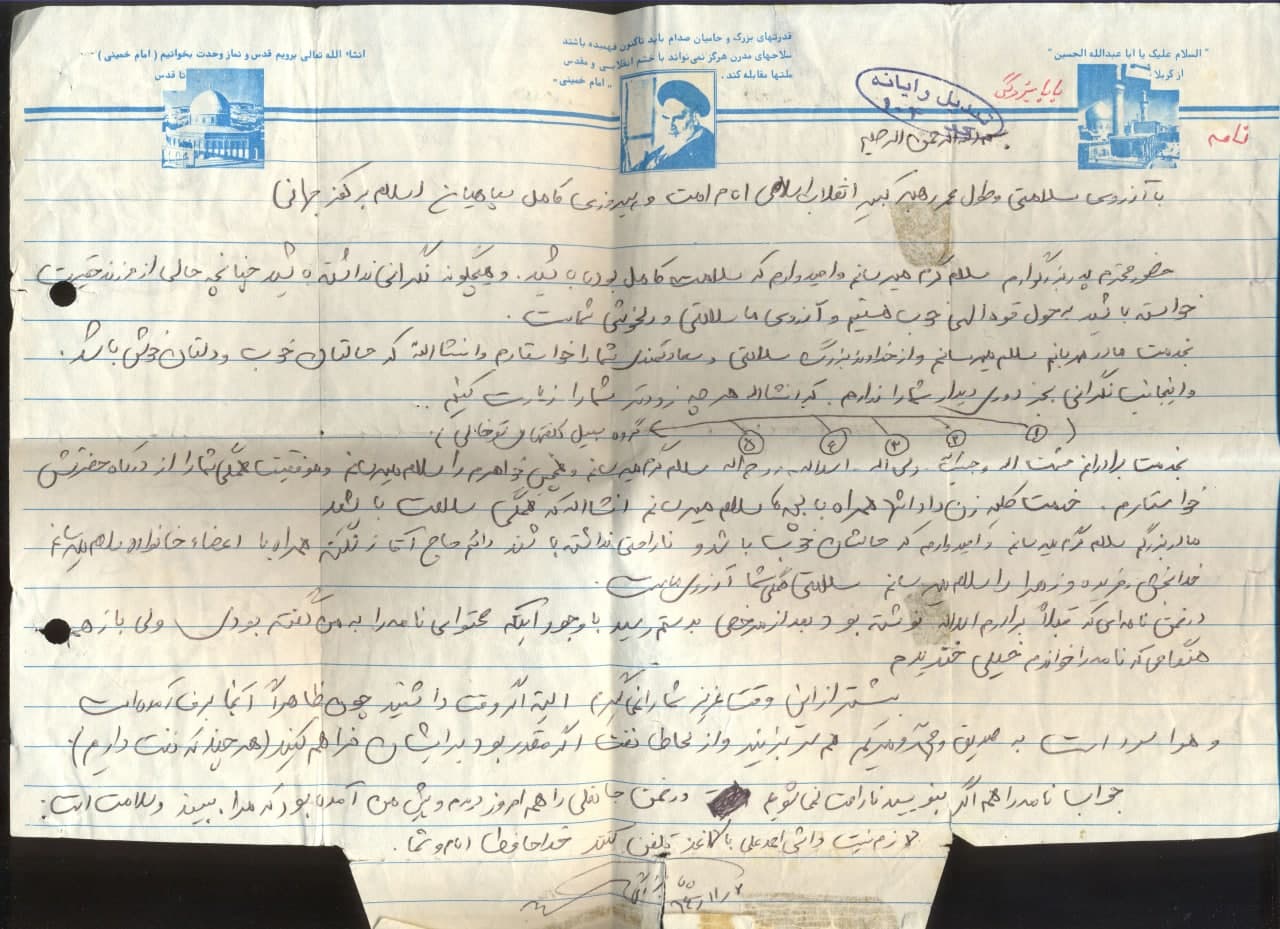 "السلام علیک یا ابا عبدالله الحسین"
از کربلا
قدرتهای بزرگ و حامیان صدام باید تاکنون فهمیده باشند
سلاحهای مدرن هرگز نمی‌تواند با خشم انقلابی و مقدس
ملتها مقابله کند. "امام خمینی"
انشاء الله تعالی برویم قدس و نماز وحدت بخوانیم (امام خمینی)
تا قدس
نامه
تبدیل رایانه
بسم الله الرحمن الرحیم
با آرزوی سلامتی و طول عمر رهبر کبیر انقلاب اسلامی امام امت و پیروزی کامل سپاهیان اسلام بر کفر جهانی
حضور محترم پدر بزرگوارم سلام گرم میرسانم و امیدوارم که سلامت کامل بوده باشید. و هیچگونه نگرانی نداشته باشید چنانچه حالی از فرزند حقیرت
خواسته باشید به حول قوه الهی خوب هستیم و آرزوی ما سلامتی و دلخوشی شماست.
بخدمت مادر مهربانم سلام میرسانم و از خداوند بزرگ سلامتی و سعادتمندی شما را خواستارم و انشااله که حالتان خوب و دلتان خوش باشد.
و اینجانب نگرانی بجز دوری دیدار شما را ندارم. که انشااله هر چه زودتر شما را زیارت کنیم..
(۱ ۲ ۳ ۴ ۵ گروه سبیل کلفتهای)
بخدمت برادرانم مشیت اله و ولی اله. اسداله. روح اله سلام گرم میرسانم و همچنین خواهرم را سلام میرسانم و موفقیت همگی شما را از درگاه حضرتش
خواستارم. خدمت کلیه زن داداشها همراه با بچه ها سلام میرسانم انشااله که همگی سلامت باشند
مادربزرگم سلام گرم میرسانم و امیدوارم که حالشان خوب باشد و ناراحتی نداشته باشند دائم حاج آقا همراه با اعضاء خانواده سلام میرسانم
خدابخش و فریده و زهرا را سلام میرسانم سلامتی همگی شما آرزوی ماست.
در ضمن نامه‌ای که قبلاً برادرم اسداله نوشته بود بعد از مرخصی بدستم رسید با وجود اینکه محتوای نامه را به من گفته بودی ولی باز هم
هنگامی که نامه را خواندم خیلی خندیدم
بیشتر از این وقت عزیز شما را نمی‌گیرم البته اگر وقت داشتید چون ظاهراً آنجا برف آمده است
و هوا سرد است به هم سر بزنید و از لحاظ نفت اگر مقدور بود برایشان فراهم کنید (هر چند که نفت دارم)
جواب نامه را هم اگر بنویسید ناراحت نمی‌شویم در ضمن را هم امروز دیدم و پیش من آمده بود که مرا ببیند و سلامت است:
لازم نیست داشی احمدعلی با تلفن کنند خداحافظ امام و شما.